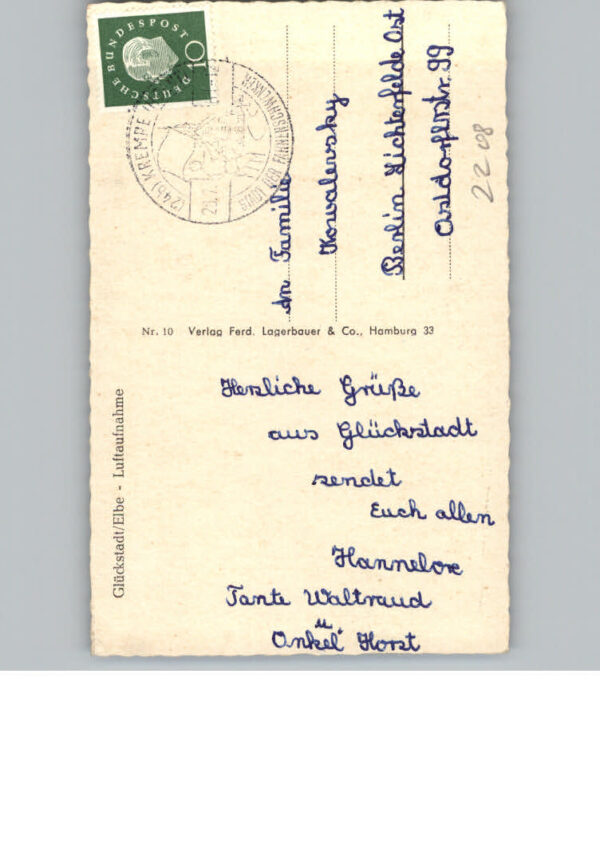 DEUTSCHE BUNDESPOST
10
(24b) KREMPE
STADT DER FAHNENSCHWENKER
An Familie
Kowalevsky
Berlin Lichterfelde Ost
Ostdorfstr. 99
22 08
Nr. 10 Verlag Ferd. Lagerbauer & Co., Hamburg 33
Glückstadt/Elbe - Luftaufnahme
Herzliche Grüße
aus Glückstadt
sendet
Euch allen
Hannelore
Tante Waltraud
u.
Onkel Horst